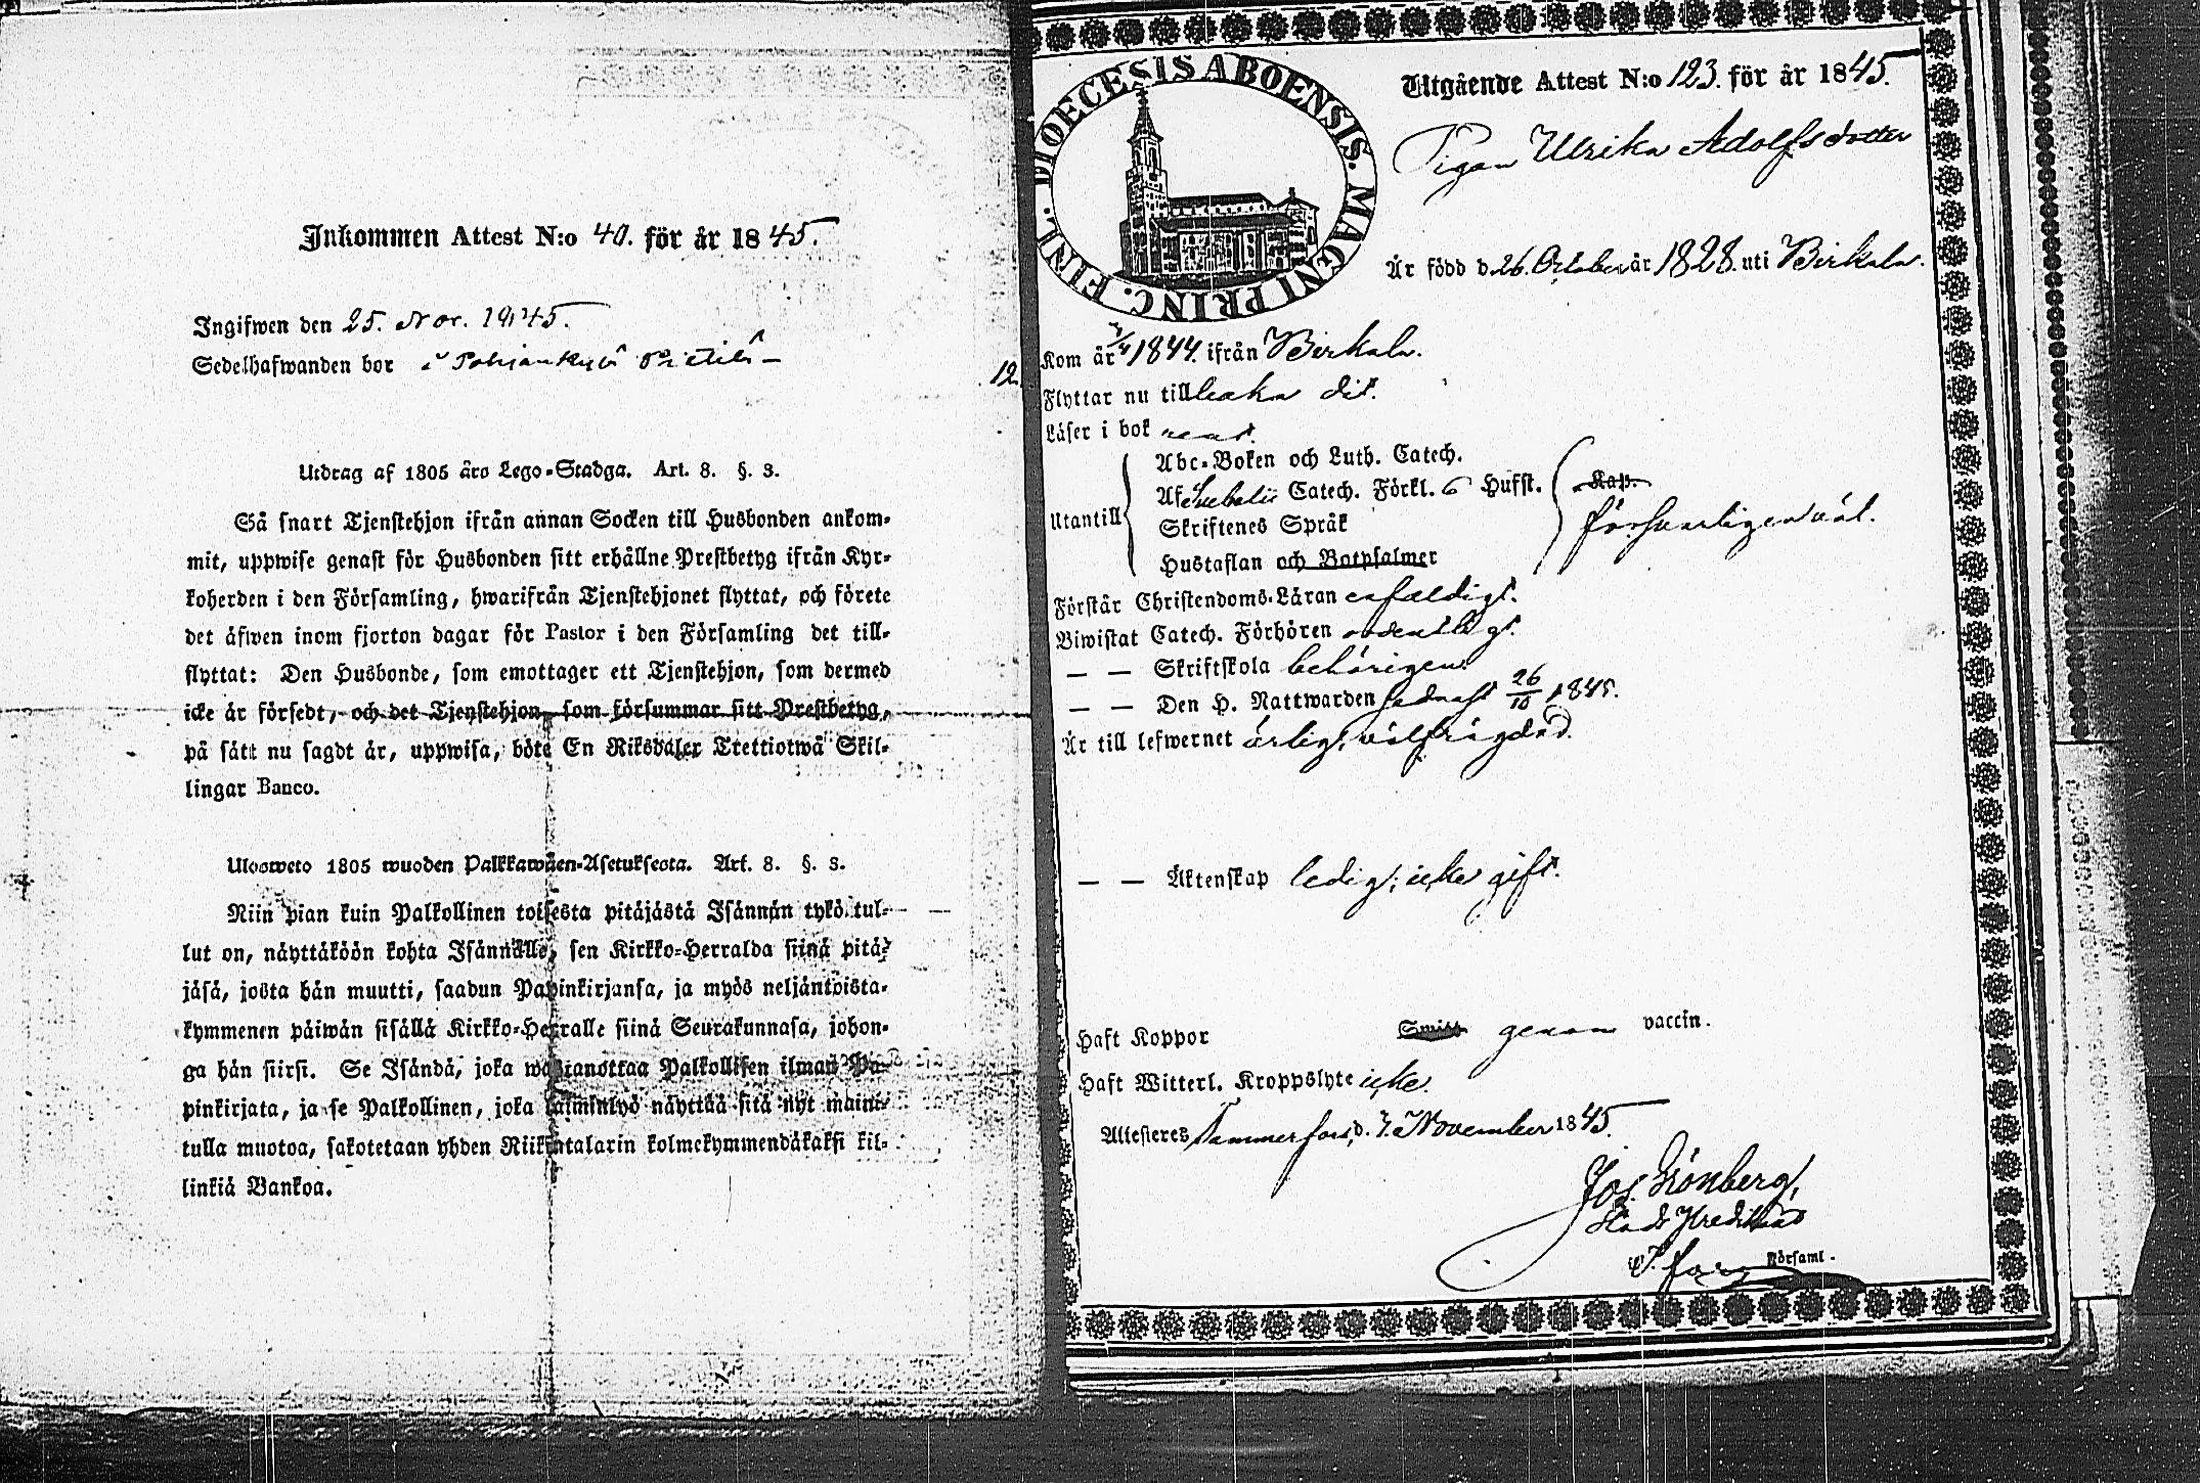 Inkommen Attest N:o 40. för år 1845.
Ingifwen den 25. Nov. 1845.
Sedelhafwanden bor i Pohjankylä
Utdrag af 1805 års Lego-Stadga. Art. 8. §. 3.
Så snart Tjenstehjon ifrån annan Socken till Husbonden ankom-
mit, uppwise genast för Husbonden sitt erhållne Prestbetyg ifrån Kyr-
koherden i den Församling, hwarifrån Tjenstehjonet flyttat, och förete
det äfwen inom fjorton dagar för Pastor i den Församling det till-
flyttat: Den Husbonde, som emottager ett Tjenstehjon, som dermed
icke är försedt, och det Tjenstehjon, som försummar sitt Prestbetyg,
på sätt nu sagdt är, uppwisa, böte En Riksdaler Trettiotwå Skil-
lingar Banco.
Ulosweto 1805 wuoden Palkkawäen-Asetuksesta. Art. 8. §. 3.
Niin pian kuin Palkollinen toisesta pitäjästä Isännän tykö tul-
lut on, näyttäköön kohta Isännälle, sen Kirkko-Herralda siinä pitä-
jäsä, josta hän muutti, saadun Papinkirjansa, ja myös neljäntoista-
kymmenen päiwän sisällä Kirkko-Herralle siinä Seurakunnasa, johon-
ga hän siirsi. Se Isändä, joka wastanottaa Palkollisen ilman Pa-
pinkirjata, ja se Palkollinen, joka laiminlyö näyttää sitä nyt maini-
tulla muotoa, sakotetaan yhden Riikintalarin kolmekymmendäkaksi kil-
linkiä Bankoa.
12.
DIOECESIS ABOENSIS. MAGNI PRINC. FINL.
Utgående Attest N:o 123. för år 1845.
Pigan Ulrika Adolfsdotter
Är född d. 26. October år 1828. uti Birkala.
Kom år 1844. ifrån Birkala.
Flyttar nu tillbaka dit.
Läser i bok rent.
Utantill
Abc-Boken och Luth. Catech.
Af Svebelii Catech. Förkl. 6 Hufst.
Skriftenes Språk
Hustaflan och Botpsalmer
Kap.
försvarligen väl.
Förstår Christendoms-Läran enfaldigt.
Biwistat Catech. Förhören ordentligt.
— — Skriftskola behörigen.
— — Den H. Nattwarden sednast 26/10 1845.
Är till lefwernet ärlig, välfrägdad.
— — Äktenskap ledig; icke gift.
Haft Koppor Smitt genom vaccin.
Haft Witterl. Kroppslyte icke.
Attesteres Tammerfors, d. 7. November 1845.
Jos. Grönberg,
Församl.